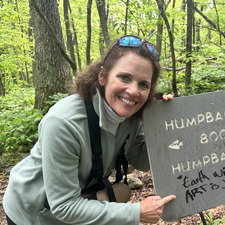 HUMPBA
80
HUMPBA
Earth wi
ART is